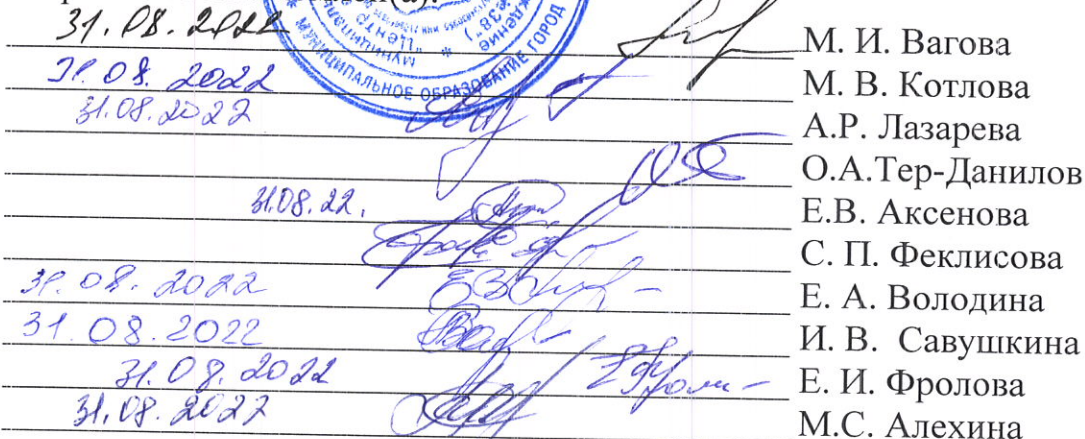 31.08.2022 М. И. Вагова
31.08.2022 М. В. Котлова
31.08.2022 А.Р. Лазарева
О.А.Тер-Данилов
31.08.22. Е.В. Аксенова
С. П. Феклисова
31.08.2022 Е. А. Володина
31.08.2022 И. В. Савушкина
31.08.2022 Е. И. Фролова
31.08.2022 М.С. Алехина
МУНИЦИПАЛЬНОЕ ОБРАЗОВАНИЕ ГОРОД